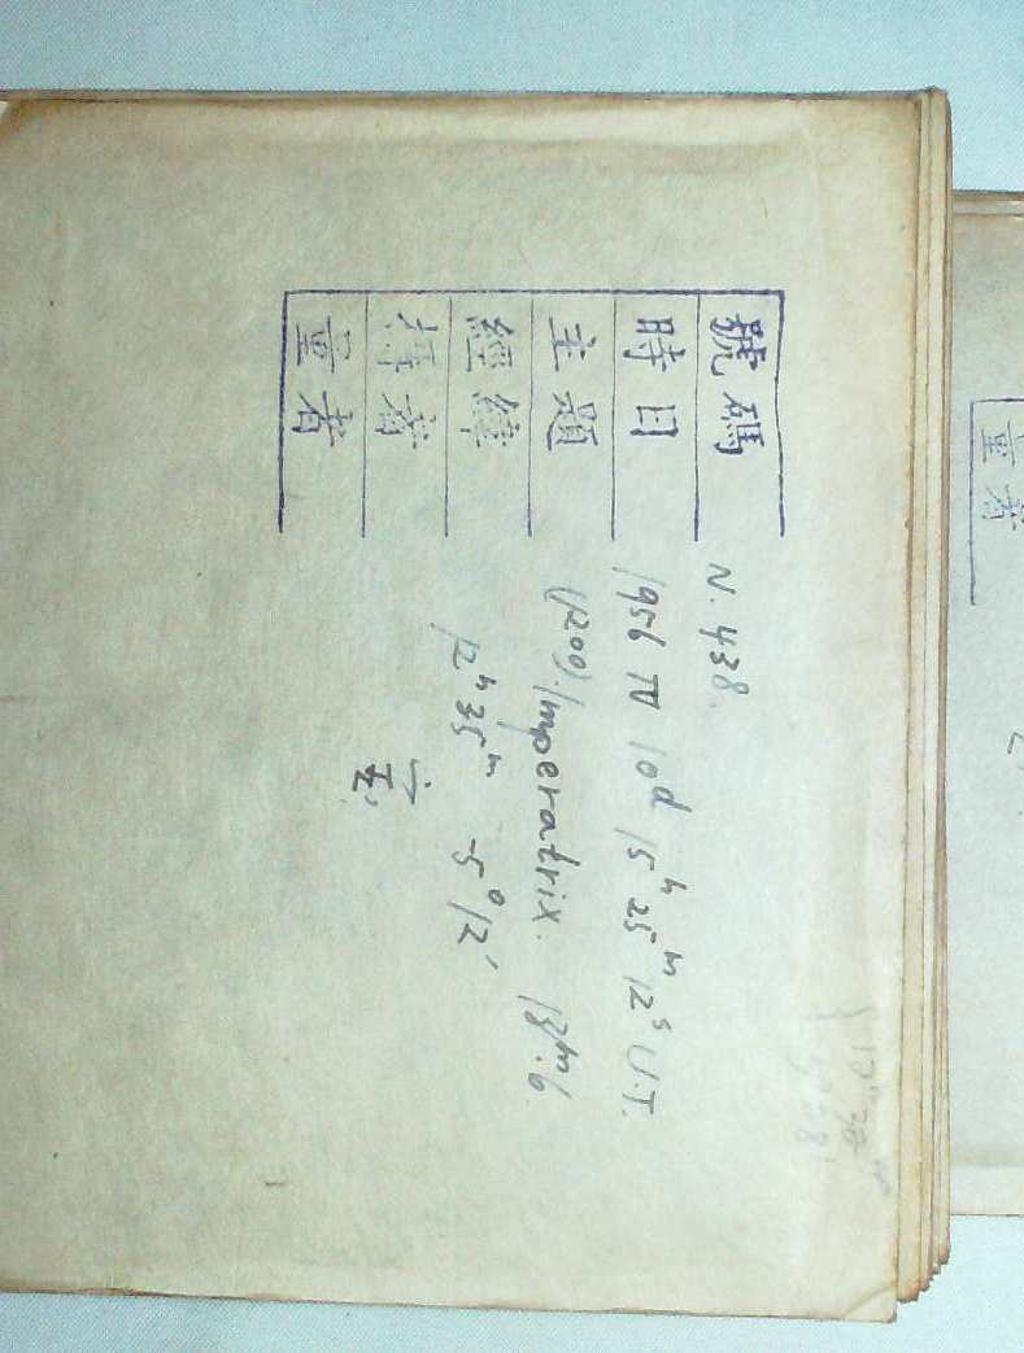 號碼 N. 438.
時日 1956 IV 10d 15h 25m 12s U.T.
主題 (1200). Imperatrix. 13m.6.
經緯 12h 35m -5° 12'
量者
量者